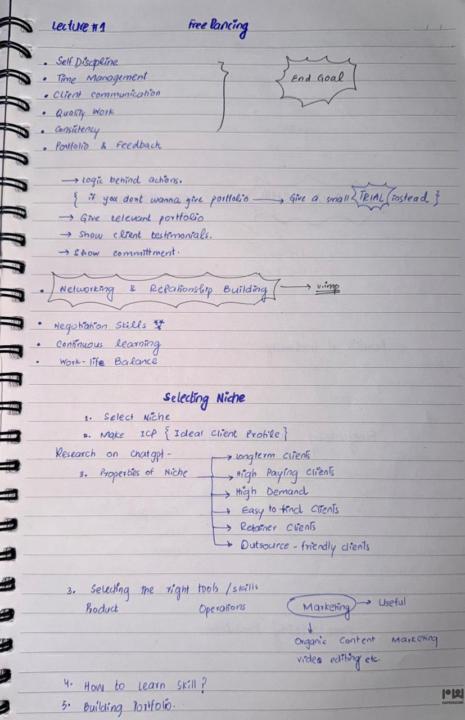 Lecture #1 Freelancing
• Self Discipline
• Time Management
• Client communication
• Quality Work
• Consistency
• Portfolio & Feedback
End Goal
→ Logic behind actions.
{ if you dont wanna give portfolio → Give a small TRIAL instead }
→ Give relevant portfolio
→ Show client testimonials.
→ Show committment.
• Networking & Relationship Building → v.imp
• Negotiation Skills **
• Continuous learning
• Work-life Balance
Selecting Niche
1. Select Niche
2. Make ICP { Ideal Client Profile }
Research on Chatgpt -
3. Properties of Niche
→ Longterm Clients
→ High Paying Clients
→ High Demand
→ Easy to find Clients
→ Retainer Clients
→ Outsource - friendly clients
3. Selecting the right tools / skills
Product Operations Marketing → Useful
↓
Organic Content Marketing
video editing etc.
4. How to Learn Skill?
5. Building Portfolio.